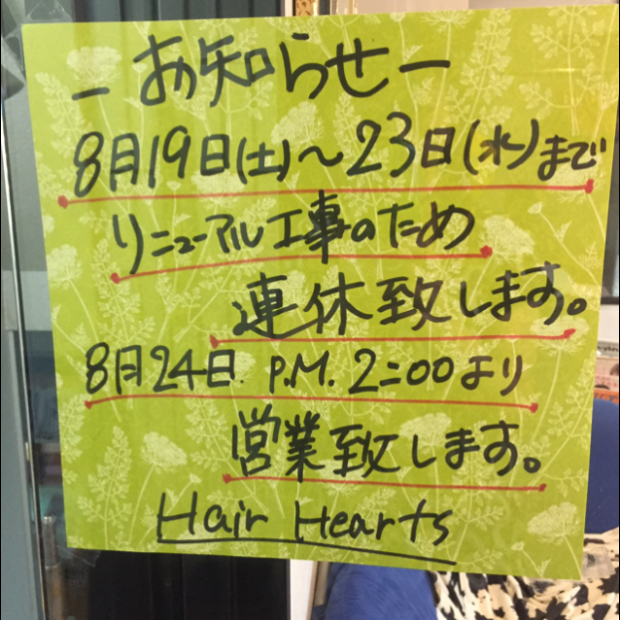 - お知らせ -
8月19日(土)～23日(水)まで
リニューアル工事のため
連休致します。
8月24日. P.M. 2:00より
営業致します。
Hair Hearts